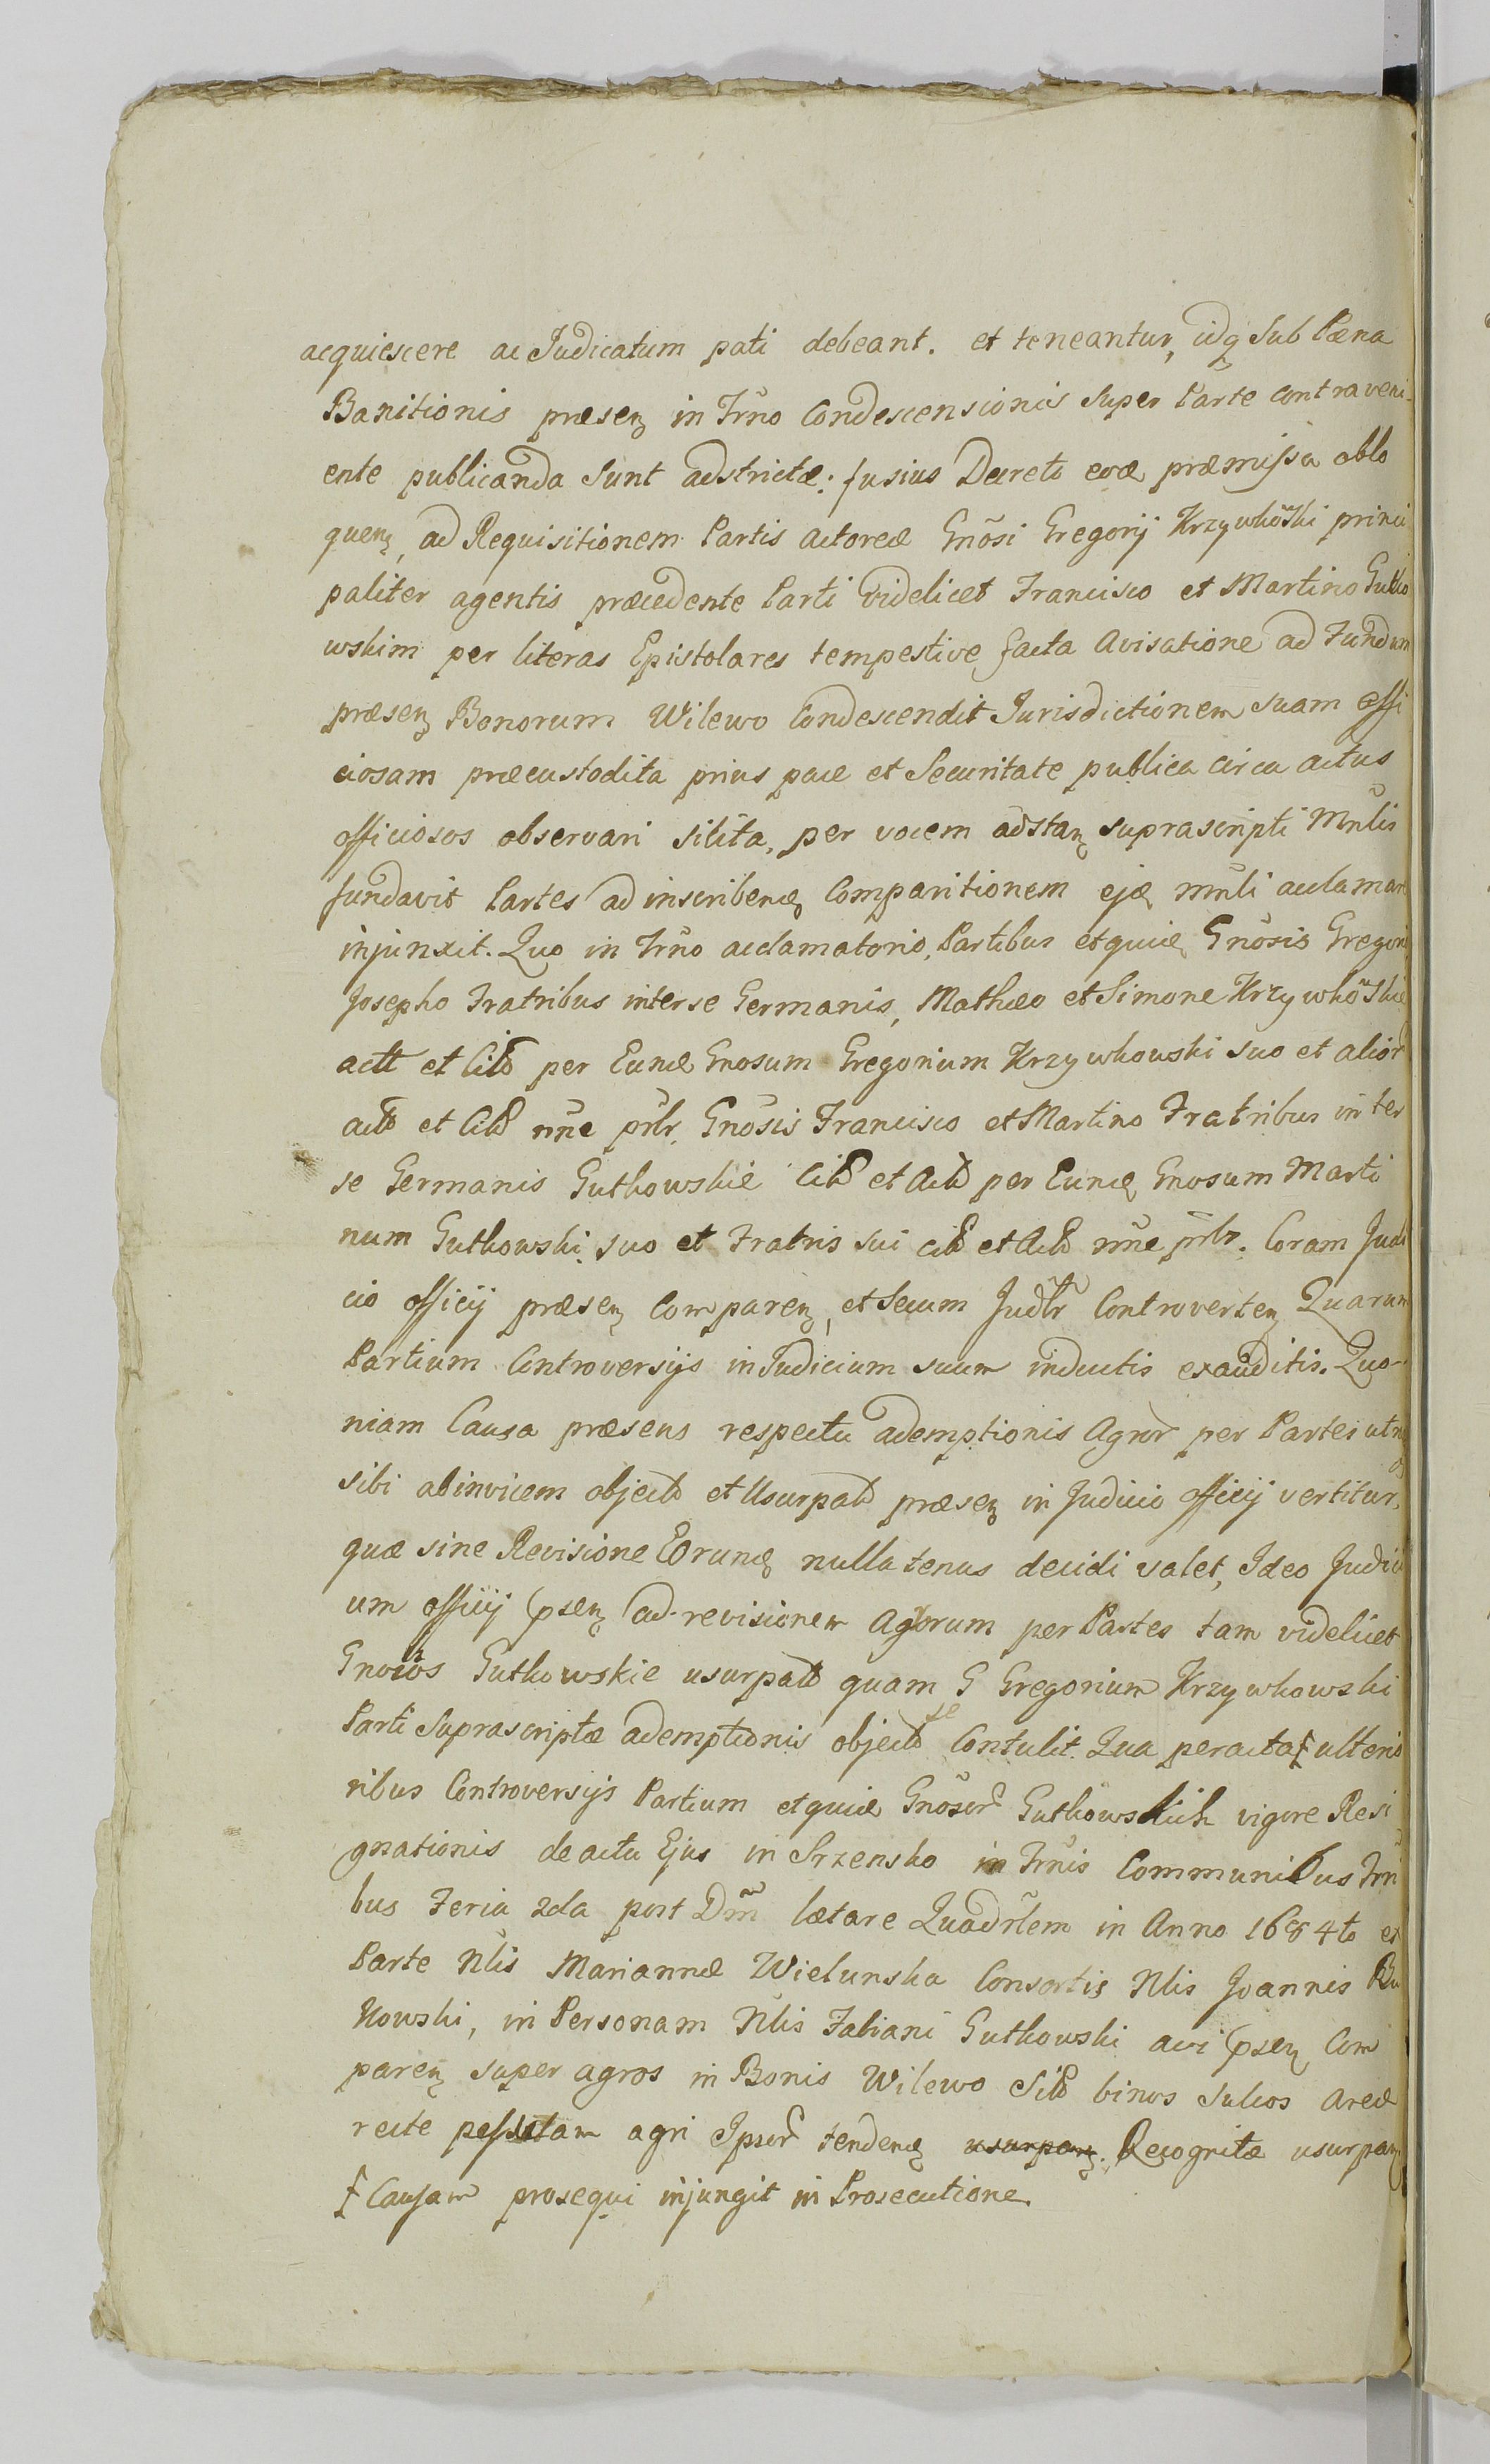 acquiescere ac Judicatum pati debeant. et teneantur, idq Sub Pæna
Banitionis præsenʒ in Trno Condescensionis Super Parte contraveni-
ente publicanda Sunt adstrictæ: fusius Decreto eoæ præmissa oblo
quenʒ, ad Requisitionem Partis actoreæ Gnosi Gregorij Krzywkoski princi
paliter agentis præcedente Parti videlicet Francisco et Martino Gutko
wskim per literas Epistolares tempestive facta Avisatione ad Fundum
præsenʒ Bonorum Wilewo Condescendit Jurisdictionem suam offi
ciosam præcustodita prius pace et Securitate publica circa actus
officiosos observari Silita, per vocem adstanʒ suprascripti Mnlis
fundavit Partes ad inscribenꝗ Comparitionem ejꝗ mnli acclamari
injunxit. Quo in Trno acclamatorio, Partibus etquiꝗ Gnosis Gregorio
Josepho Fratribus interse Germanis, Mathæo et Simone Krzywkoskie
actt et Citt per Eunꝗ Gnosum Gregorium Krzywkowski suo et alior
actt et Citt nne prlr, Gnosis Francisco et Martino Fratribus inter
se Germanis Gutkowskie Citt et Actt per Eunꝗ Gnosum Marti
num Gutkowski suo et Fratris sui citt et Actt nne prlr. Coram Judi
cio officij præsenʒ Comparenʒ, et Secum Judlr Controvertenʒ Quarum
Partium Controversijs in Judicium suum inductis exauditis. Quo-
niam Causa præsens respectu ademptionis Agror per Partes utrasꝗ
sibi abinvicem objectt et Usurpatt præsenʒ in Judicio officij vertitur,
quæ sine Revisione Eorunꝗ nullatenus decidi valet, Ideo Judici
um officij psenʒ ad revisionem Agrorum per Partes tam videlicet
Gnosos Gutkowskie usurpatt quam G Gregorium Krzywkowski
Parti Suprascriptæ ademptionis objectt se Contulit. Qua peracta ⁅ ulterio
ribus Controversijs Partium etquiꝗ Gnosor Gutkowskich vigore Resi
gnationis de actu Ejus in Srzensko in Trnis Communibus Trri
bus Feria 2da post Dm lætare Quadrlem in Anno 1684to ex
Parte Nlis Mariannæ Wielunska Consortis Nlis Joannis Bu
kowski, in Personam Nlis Fabiani Gutkowski avi psenʒ Com
parenʒ super agros in Bonis Wilewo Sitt binos Sulcos Areæ
recte agri Ipsor tendenꝗ usurpanʒ. Recognitæ usurpanʒ
⁅ Causam prosequi injungit in Prosecutione